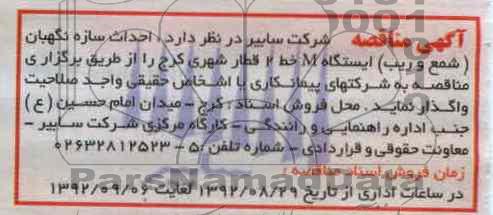 آگهی مناقصه شرکت سابیر در نظر دارد ، احداث سازه نگهبان
( شمع و ریب) ایستگاه M خط ۲ قطار شهری کرج را از طریق برگزاری
مناقصه به شرکتهای پیمانکاری یا اشخاص حقیقی واجد صلاحیت
واگذار نماید . محل فروش اسناد : کرج - میدان امام حسین (ع)
جنب اداره راهنمایی و رانندگی - کارگاه مرکزی شرکت سابیر -
معاونت حقوقی و قراردادی - شماره تلفن : ۵ - ۰۲۶۳۲۸۱۲۵۲۳
زمان فروش اسناد مناقصه :
در ساعات اداری از تاریخ ۱۳۹۲/۰۸/۲۹ لغایت ۱۳۹۲/۰۹/۰۶
ParsNamadData